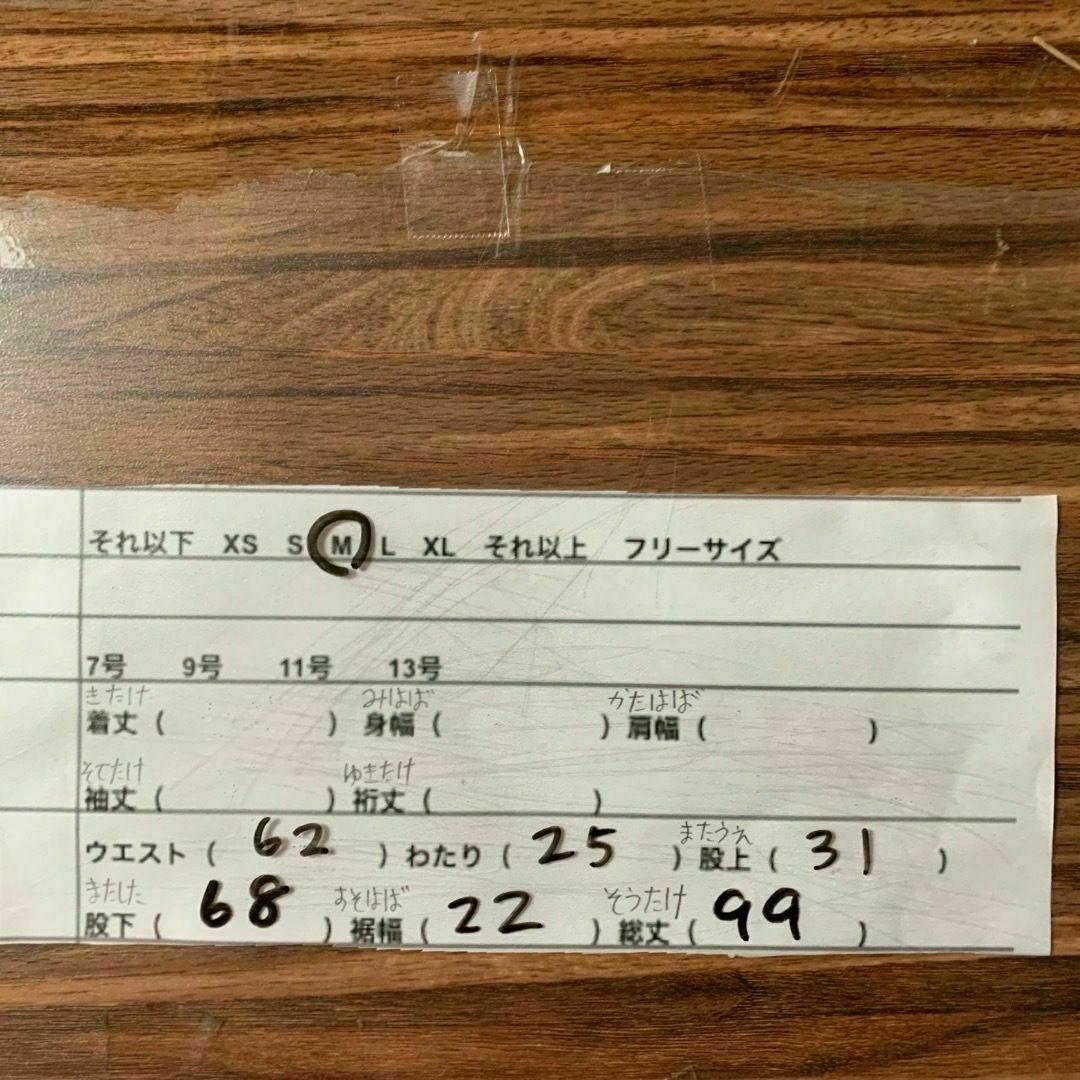 それ以下 XS S M L XL それ以上 フリーサイズ
7号 9号 11号 13号
きたけ みはば かたはば
着丈 ( ) 身幅 ( ) 肩幅 ( )
そでたけ ゆきたけ
袖丈 ( ) 裄丈 ( )
またうえ
ウエスト ( 62 ) わたり ( 25 ) 股上 ( 31 )
またした すそはば そうたけ
股下 ( 68 ) 裾幅 ( 22 ) 総丈 ( 99 )